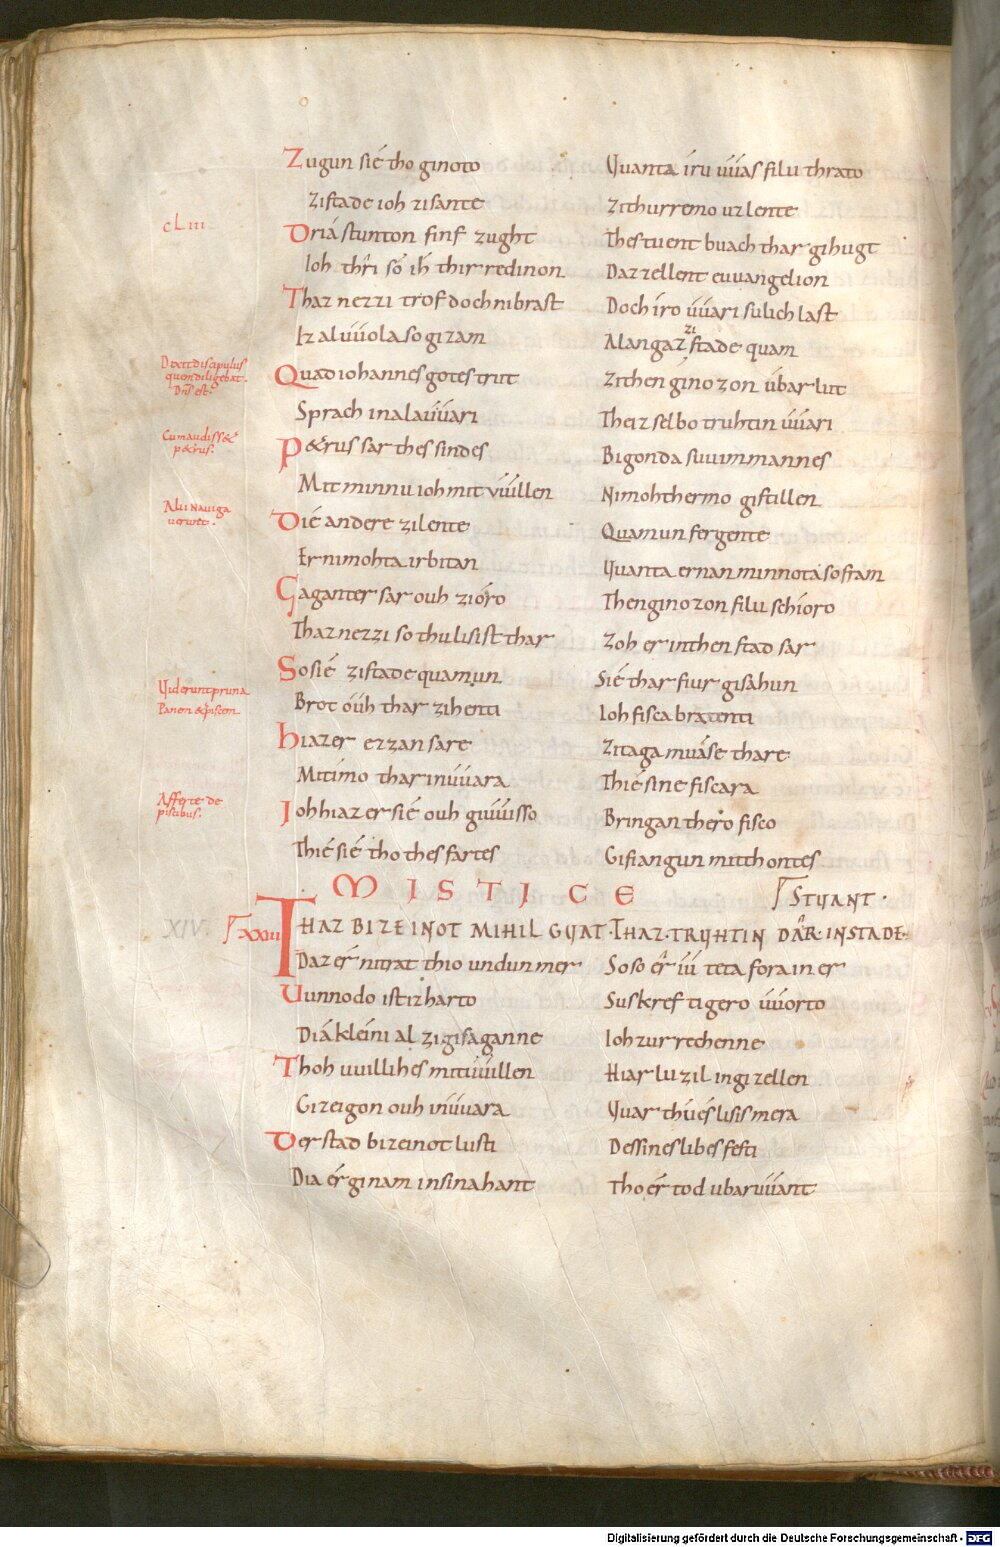 Zugun sié tho ginoto Quanta íru uúas filu thrato
Zistade ioh zisante Zithurremo uzlente
cLIII
Driá stunton finf zught Thestuent buach thar gihugt
Ioh thri so ih thir redinon Daz zellent euuangelion
Thaz nezzi trof doch nibrast Doch íro uúari sulich last
Iz al uúola so gizam Alangaz zi stade quam
Dixit discipulus
quem diligebat.
Dn̄s est.
Quad iohannes gotes trut Zithen ginozon úbar lut
Sprach in ala uúari Theiz selbo truhtin uúari
Cum audisset
petrus.
Petrus sar thes sindes Bigonda suuimmannes
Mit minnu ioh mit uúillen Nimohthermo gistillen
Alii naviga
uerunt.
Dié andere zilente Quamun fergente
Er nimohta irbitan Quanta er nan minnota so fram
Gaganter sar ouh zióro Thenginozon filu schioro
Thaz nezzi so thu lisist thar Zoh er inthen stad sar
Sosié zistade quamun Sié thar fiur gisahun
Viderunt pruna
Panem & piscem
Brot oúh thar zihenti Ioh fisca bratenti
Hiaz er ezzan sare Zitaga muáse thare
Mit imo thar in uúara Thié sine fiscara
Afferte de
piscibus.
Ioh hiaz er sié ouh giuuisso Bringan thero fisco
Thié sié tho thes fartes Gifiangun mit thontes
MISTICE STUANT.
XIV. XXXIII THAZ BIZEINOT MIHIL GUAT. THAZ TRUHTIN DAR INSTADE
Daz ér nitrat thio undun mer Soso ér uúteta fora in er
Uunnodo ist iz harto Suskref tigero uúorto
Diá kleini al zigisaganne Ioh zurrechenne
Thoh uuillih es mit uúillen Hiar luzil ingizellen
Gizeigon ouh in uúara Quar thúes lisis mera
Der stad bizeinot lusti Dessines libes festi
Dia ér ginam in sina hant Tho ér tod ubaruuant
Digitalisierung gefördert durch die Deutsche Forschungsgemeinschaft - DFG